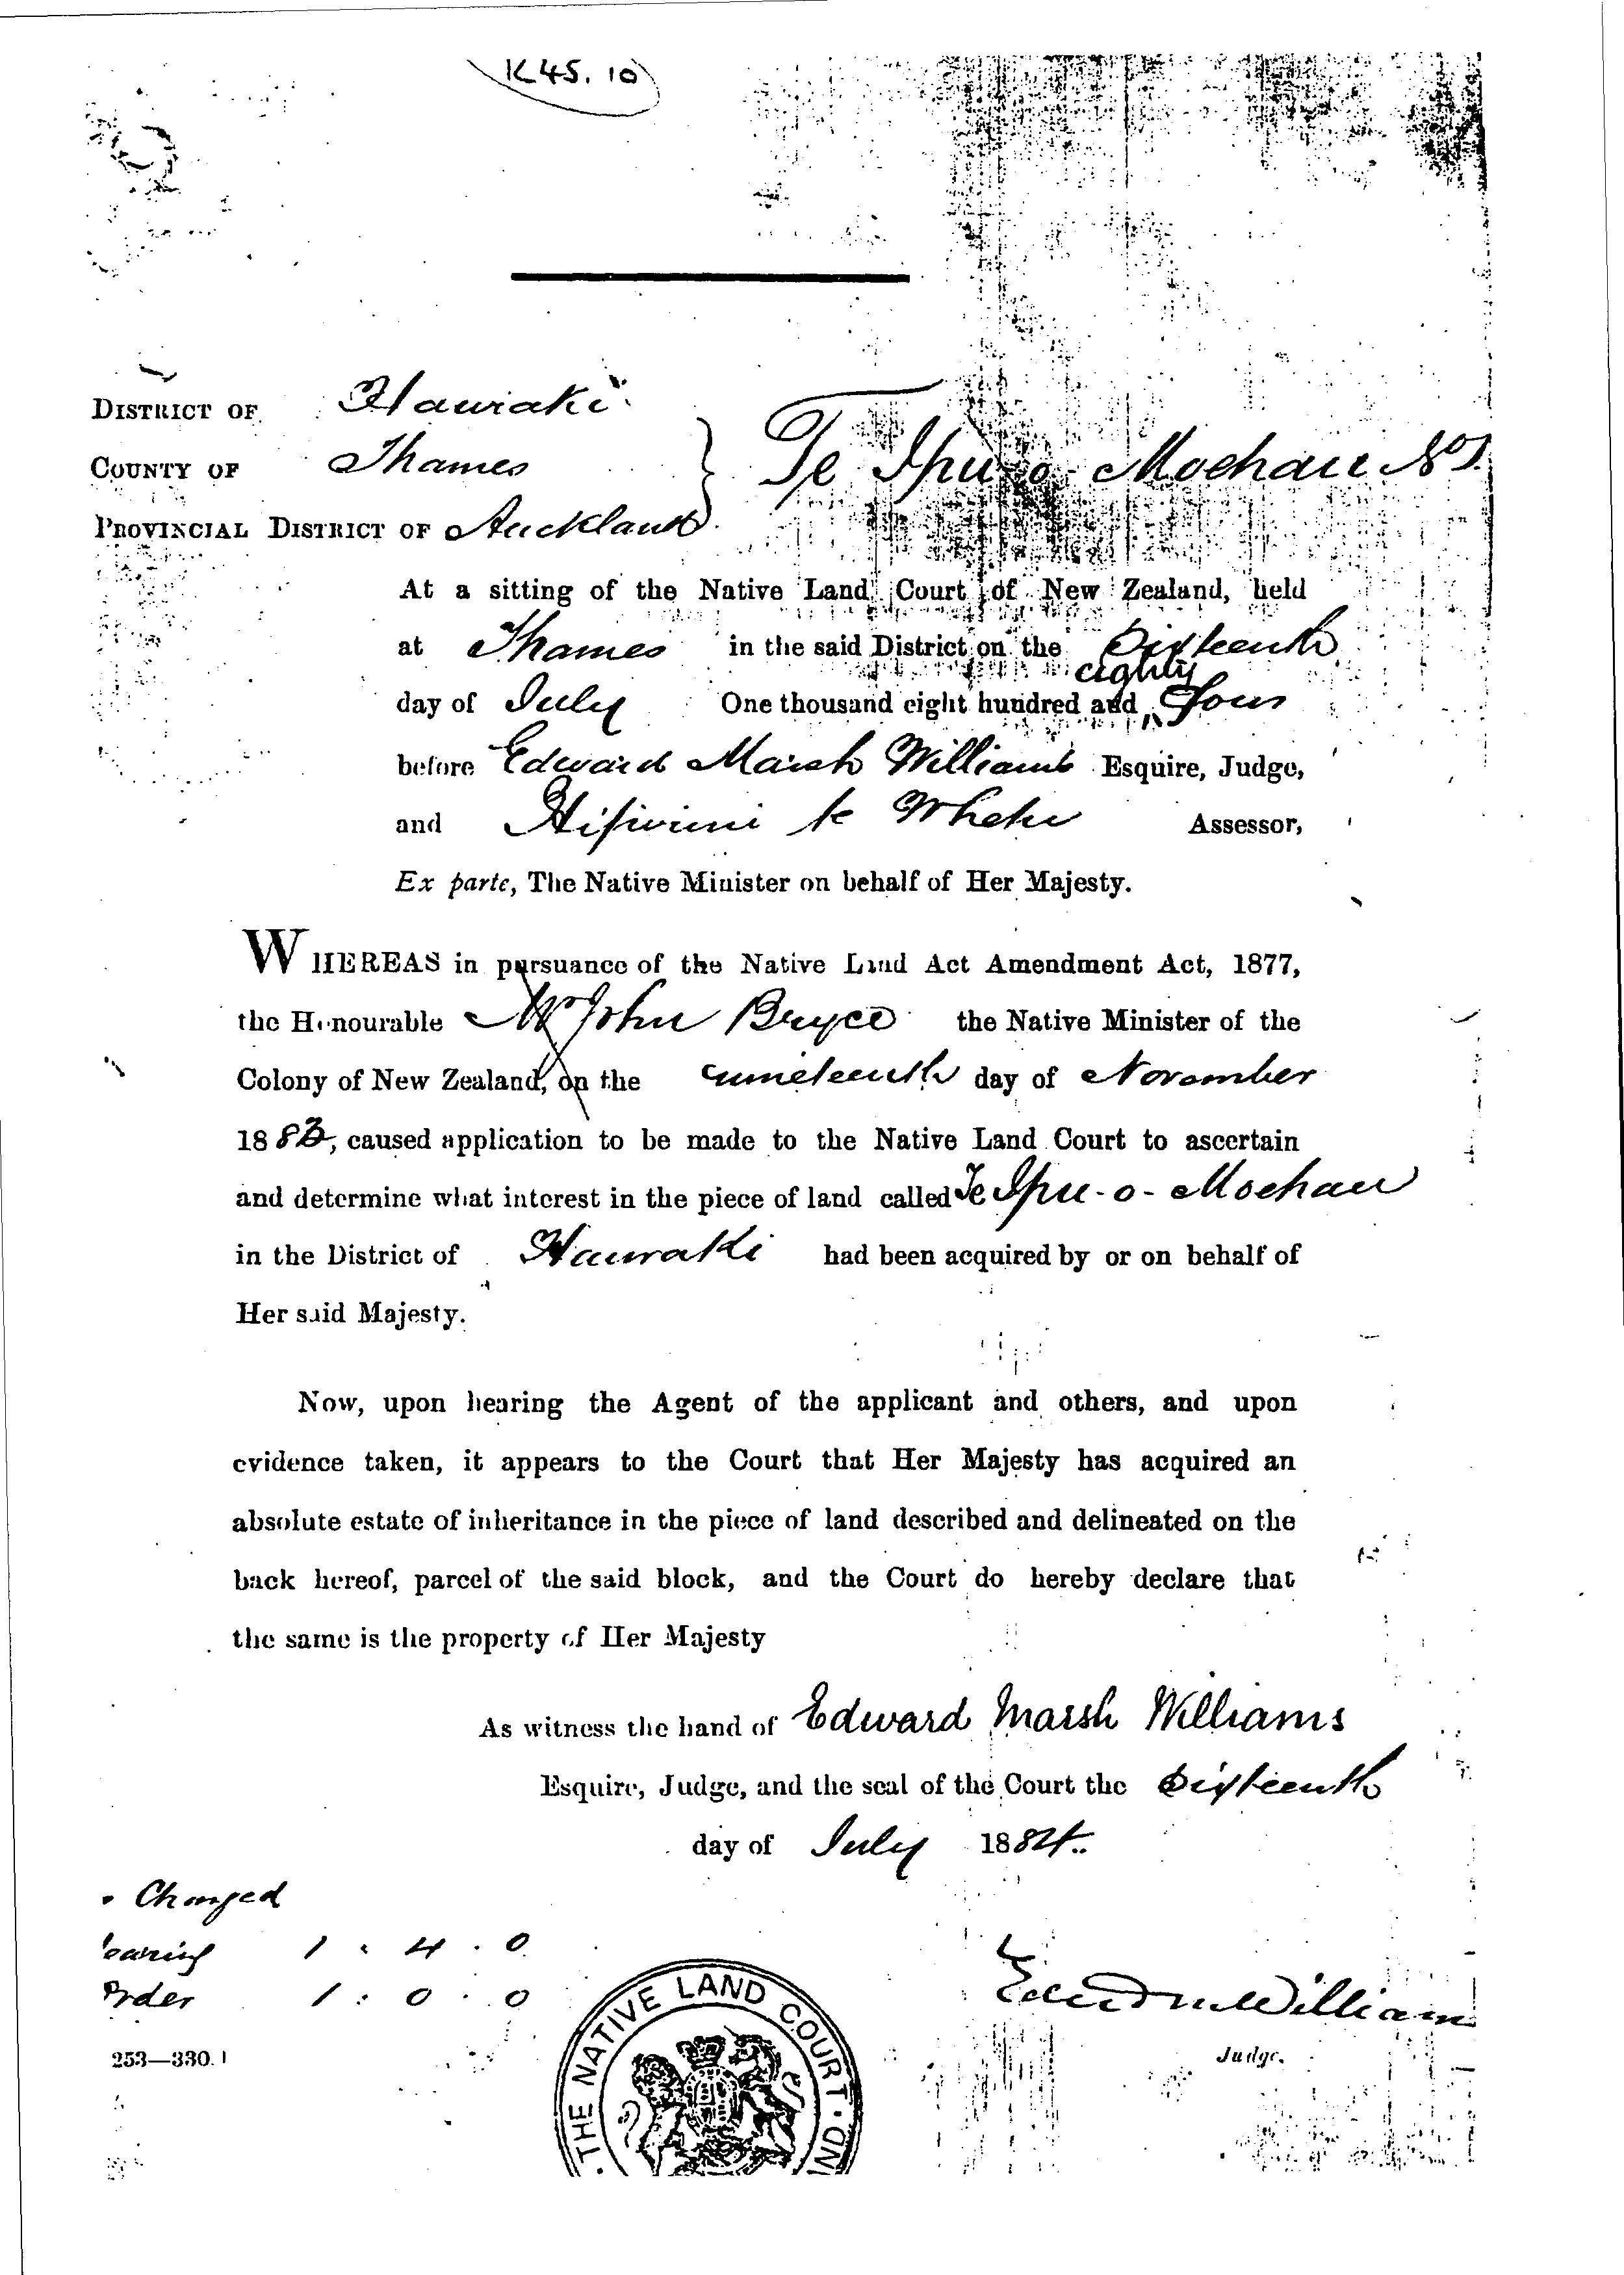 K45.10
DISTRICT OF Hauraki
COUNTY OF Thames
Te Ipu-o-Moehau No 1.
PROVINCIAL DISTRICT OF Auckland
At a sitting of the Native Land Court of New Zealand, held
at Thames in the said District on the Sixteenth
day of July One thousand eight hundred and eighty Four
before Edward Marsh Williams Esquire, Judge,
and te Wheke Assessor,
Ex parte, The Native Minister on behalf of Her Majesty.
WHEREAS in pursuance of the Native Land Act Amendment Act, 1877,
the Honourable Mr John Bryce the Native Minister of the
Colony of New Zealand, on the nineteenth day of November
1883, caused application to be made to the Native Land Court to ascertain
and determine what interest in the piece of land called Te Ipu-o-Moehau
in the District of Hauraki had been acquired by or on behalf of
Her said Majesty.
Now, upon hearing the Agent of the applicant and others, and upon
evidence taken, it appears to the Court that Her Majesty has acquired an
absolute estate of inheritance in the piece of land described and delineated on the
back hereof, parcel of the said block, and the Court do hereby declare that
the same is the property of Her Majesty
As witness the hand of Edward Marsh Williams
Esquire, Judge, and the seal of the Court the Sixteenth
day of July 1884.
Charged
earing 1 . 4 . 0
Order 1 : 0 . 0
Edwd M Williams
Judge.
253—330.
THE NATIVE LAND COURT